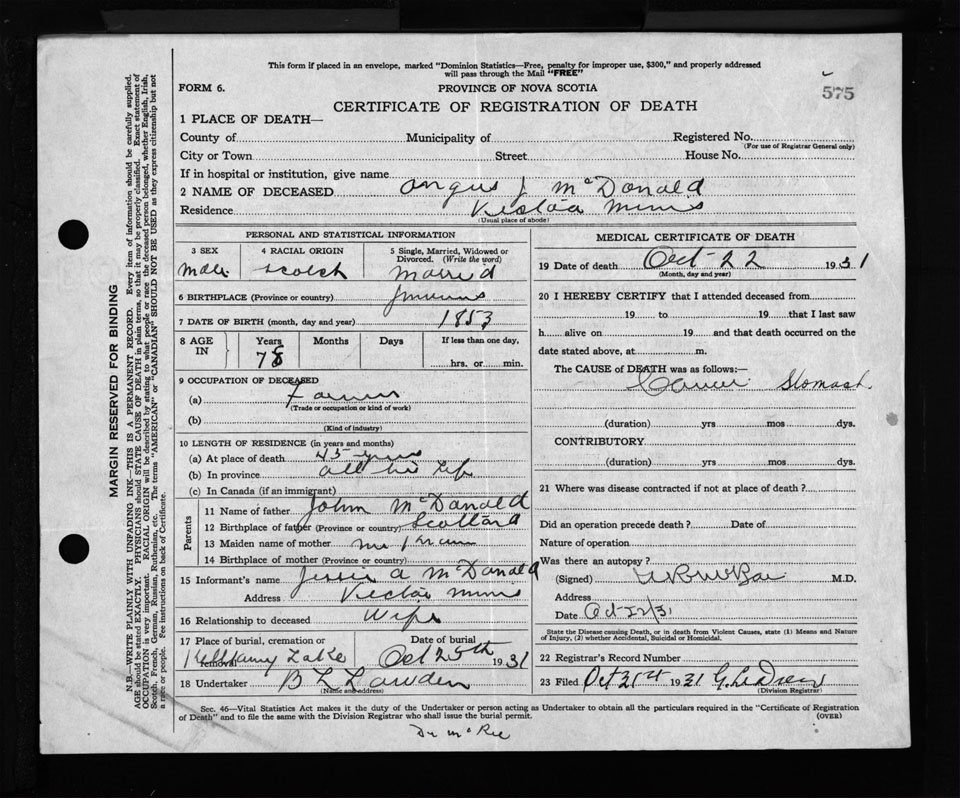 This form if placed in an envelope, marked "Dominion Statistics—Free, penalty for improper use, $300," and properly addressed
will pass through the Mail "FREE"
FORM 6.
PROVINCE OF NOVA SCOTIA
575
CERTIFICATE OF REGISTRATION OF DEATH
1 PLACE OF DEATH—
County of Municipality of Registered No.
(For use of Registrar General only)
City or Town Street House No.
If in hospital or institution, give name
2 NAME OF DECEASED Angus J McDonald
Residence Victoria Mines
(Usual place of abode)
PERSONAL AND STATISTICAL INFORMATION
3 SEX 4 RACIAL ORIGIN 5 Single, Married, Widowed or Divorced. (Write the word)
Male Scotch Married
6 BIRTHPLACE (Province or country)
7 DATE OF BIRTH (month, day and year) 1853
8 AGE IN Years Months Days If less than one day,
78 hrs. or min.
9 OCCUPATION OF DECEASED
(a) Farmer
(Trade or occupation or kind of work)
(b)
(Kind of industry)
10 LENGTH OF RESIDENCE (in years and months)
(a) At place of death 45 years
(b) In province all his Life
(c) In Canada (if an immigrant)
Parents
11 Name of father John McDonald
12 Birthplace of father (Province or country) Scotland
13 Maiden name of mother
14 Birthplace of mother (Province or country)
15 Informant's name Jessie A McDonald
Address Victoria Mines
16 Relationship to deceased Wife
17 Place of burial, cremation or removal Date of burial
Lake Oct 25th 1931
18 Undertaker B L Lowden
(Name and address)
MEDICAL CERTIFICATE OF DEATH
19 Date of death Oct 22 1931
(Month, day and year)
20 I HEREBY CERTIFY that I attended deceased from
19 to 19 that I last saw
h alive on 19 and that death occurred on the
date stated above, at m.
The CAUSE of DEATH was as follows:—
Cancer Stomach
(duration) yrs mos dys.
CONTRIBUTORY
(duration) yrs. mos. dys.
21 Where was disease contracted if not at place of death?
Did an operation precede death? Date of
Nature of operation
Was there an autopsy?
(Signed) M.D.
Address
Date
State the Disease causing Death, or in death from Violent Causes, state (1) Means and Nature
of Injury, (2) whether Accidental, Suicidal or Homicidal.
22 Registrar's Record Number
23 Filed Oct 31st 1931 G. LeDrew
(Division Registrar)
Sec. 46—Vital Statistics Act makes it the duty of the Undertaker or person acting as Undertaker to obtain all the particulars required in the "Certificate of Registration
of Death" and to file the same with the Division Registrar who shall issue the burial permit. (OVER)
Dr McRae
MARGIN RESERVED FOR BINDING
N.B.—WRITE PLAINLY WITH UNFADING INK—THIS IS A PERMANENT RECORD. Every item of information should be carefully supplied.
AGE should be stated EXACTLY. PHYSICIANS should STATE CAUSE OF DEATH in plain terms, so that it may be properly classified. Exact statement of
OCCUPATION is very important. RACIAL ORIGIN will be described by stating to what people or race the deceased person belonged, whether English, Irish,
Scotch, French, German, Russian, Ruthenian, etc. The terms "AMERICAN" or "CANADIAN" SHOULD NOT BE USED as they express citizenship but not
a race or people. Fee instructions on back of Certificate.